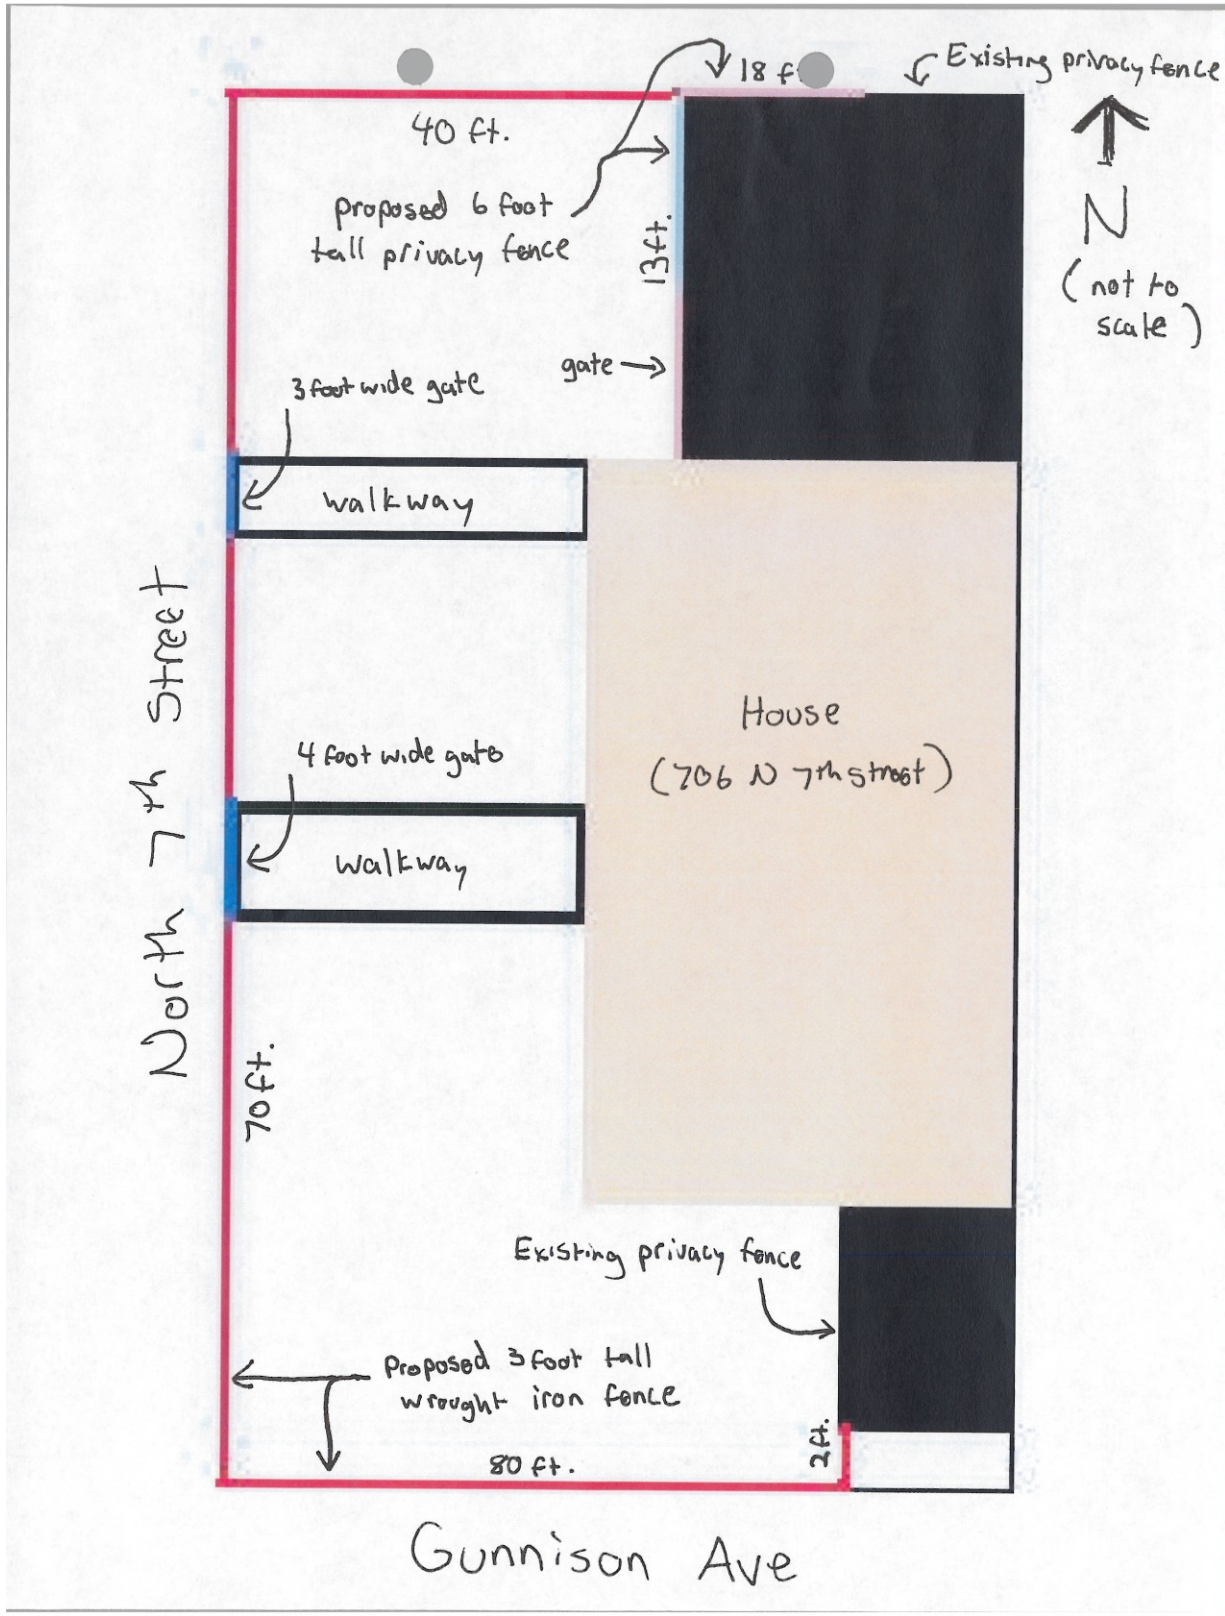 18 f
Existing privacy fence
40 ft.
N
(not to
scale)
proposed 6 foot
tall privacy fence
13ft.
gate
3 foot wide gate
walkway
North 7th Street
House
(706 N 7th street)
4 foot wide gate
walkway
70ft.
Existing privacy fence
Proposed 3 foot tall
wrought iron fence
2ft.
80 ft.
Gunnison Ave